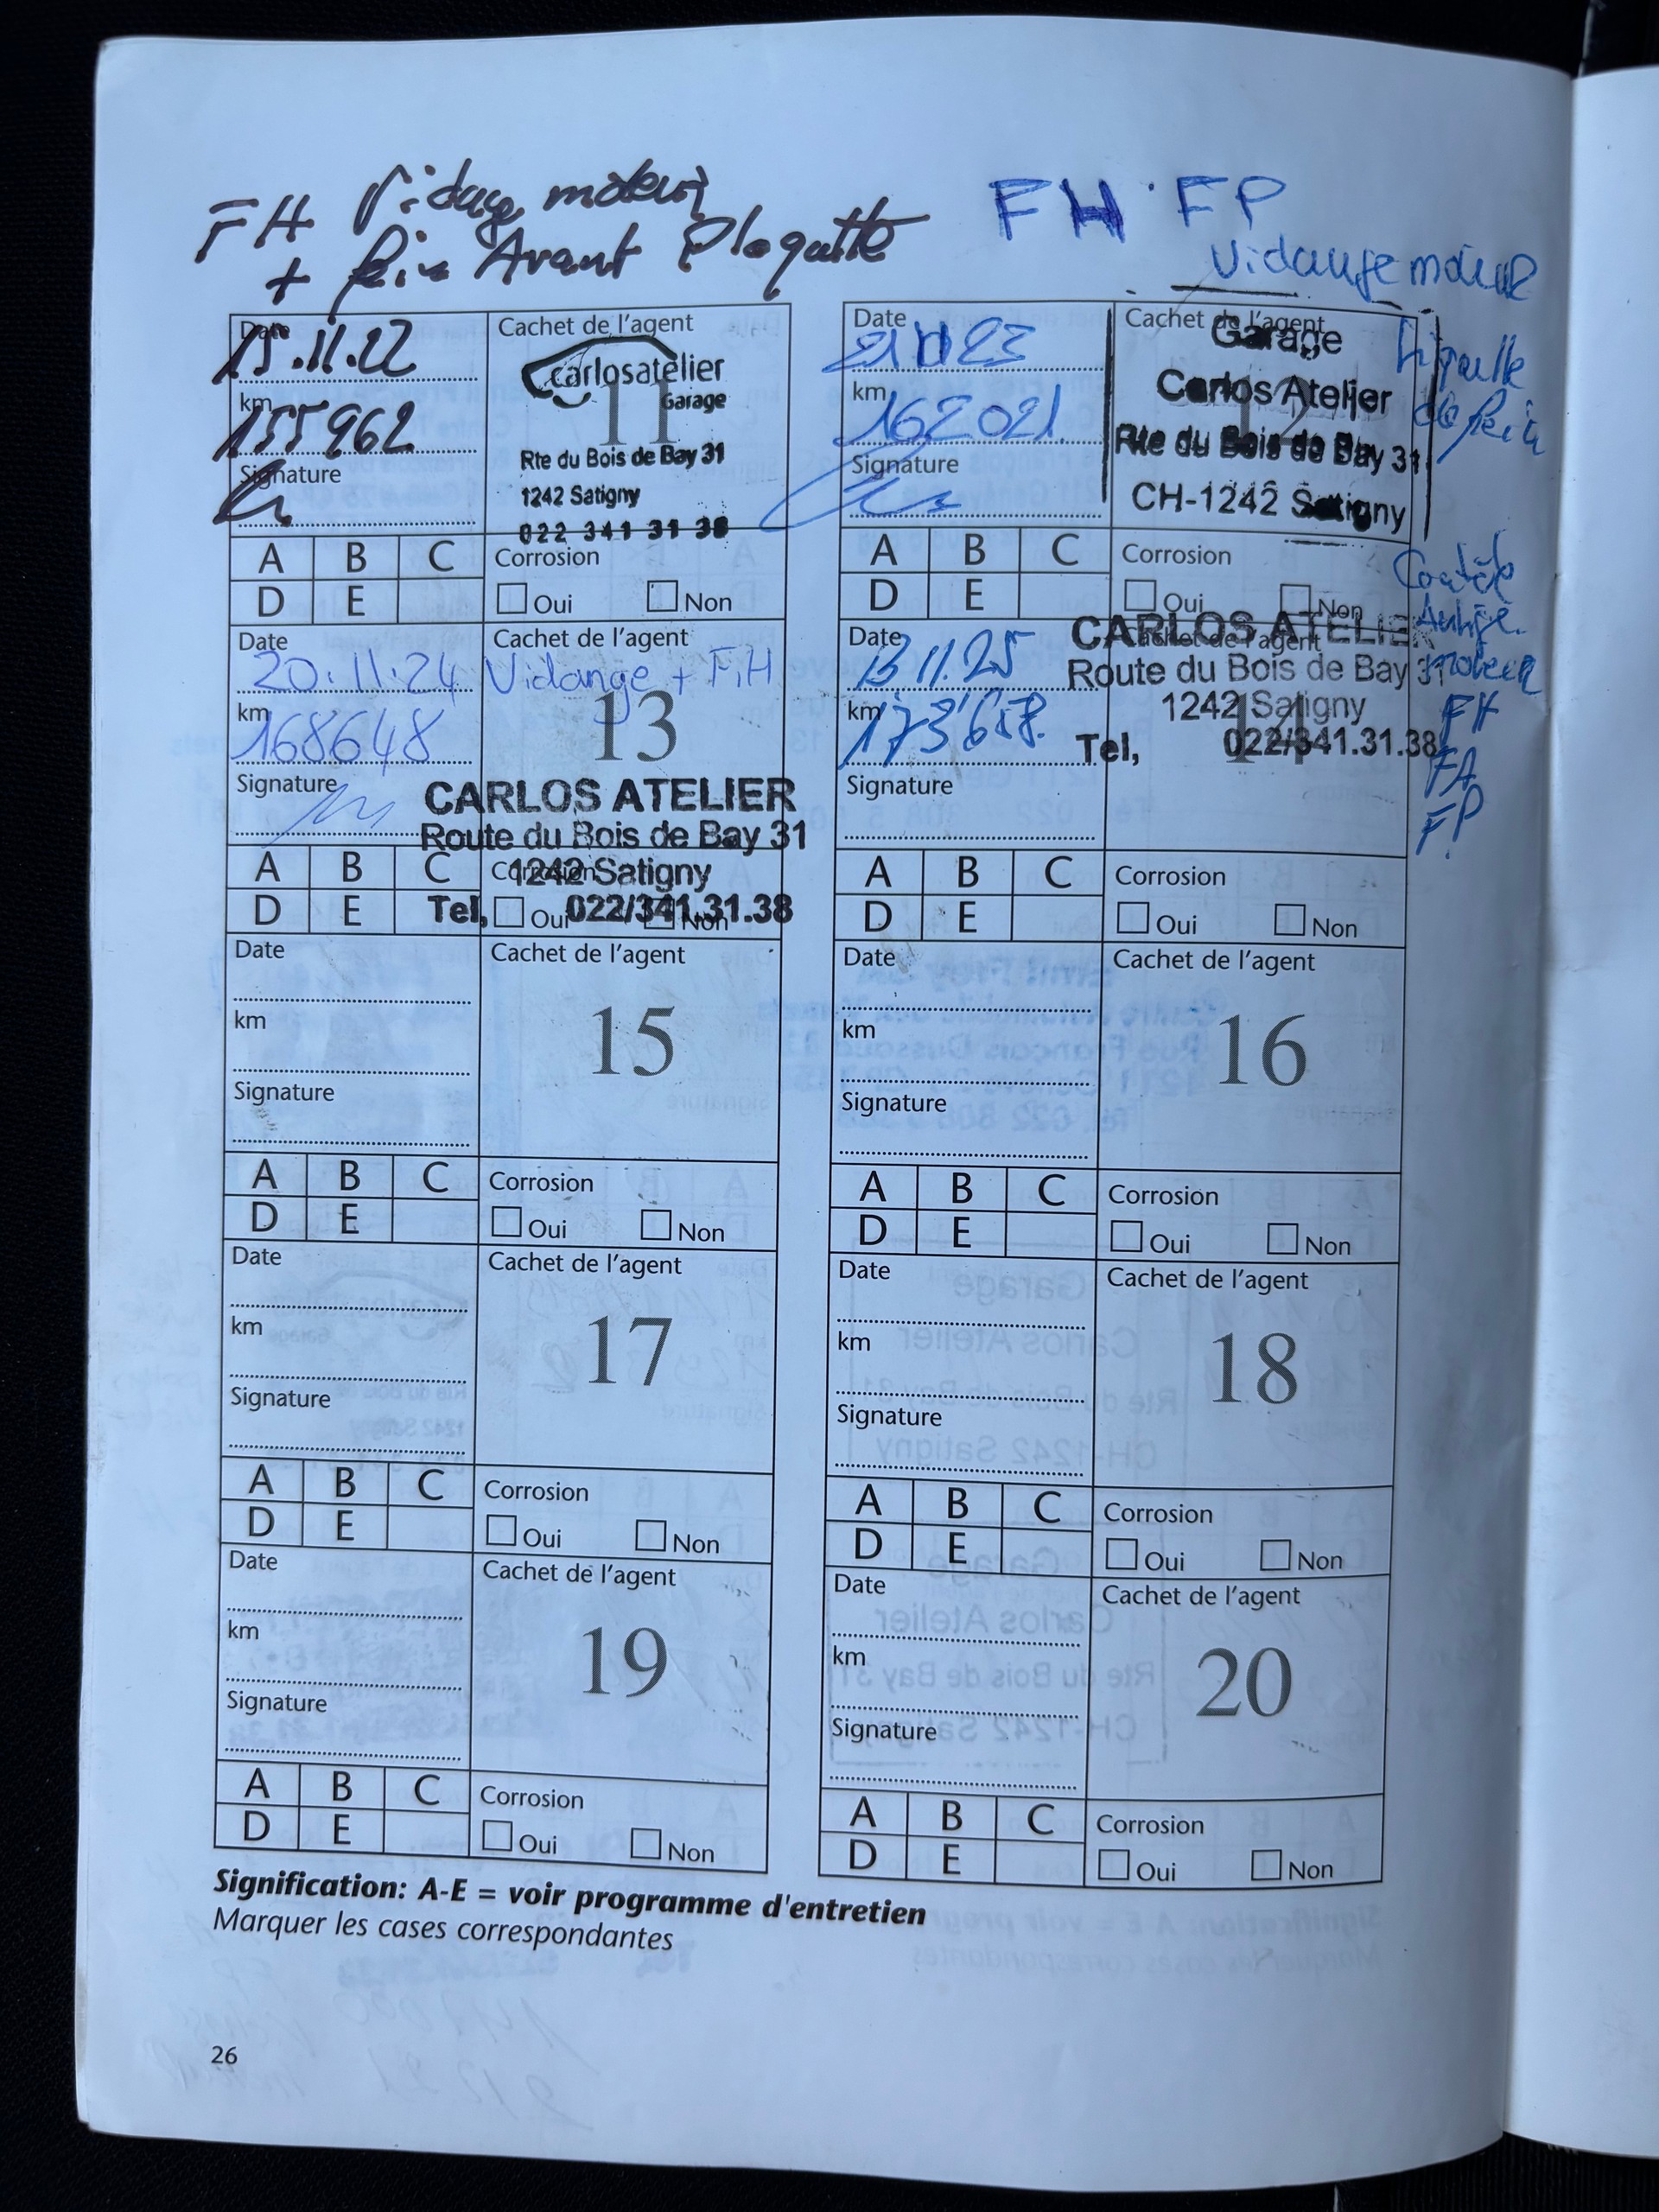 FH Vidange moteur
+ frein Avant Plaquette
FH FP
Vidange moteur
Date
15.11.22
km
155962
Signature
Cachet de l'agent
11
carlosatelier
Garage
Rte du Bois de Bay 31
1242 Satigny
022 341 31 38
A B C
D E
Corrosion
Oui Non
Date
23
km
162021
Signature
Cachet de l'agent
12
Garage
Carlos Atelier
Rte du Bois de Bay 31
CH-1242 Satigny
de frein
A B C
D E
Corrosion
Oui Non
Date
20.11.24
km
168648
Signature
Cachet de l'agent
Vidange + F.H
13
CARLOS ATELIER
Route du Bois de Bay 31
1242 Satigny
Tel, 022/341.31.38
A B C
D E
Corrosion
Oui Non
Date
13.11.25
km
173'658.
Signature
Cachet de l'agent
14
CARLOS ATELIER
Route du Bois de Bay 31
1242 Satigny
Tel, 022/341.31.38
moteur
FH
FA
FP
A B C
D E
Corrosion
Oui Non
Date
km
Signature
Cachet de l'agent
15
A B C
D E
Corrosion
Oui Non
Date
km
Signature
Cachet de l'agent
16
A B C
D E
Corrosion
Oui Non
Date
km
Signature
Cachet de l'agent
17
A B C
D E
Corrosion
Oui Non
Date
km
Signature
Cachet de l'agent
18
A B C
D E
Corrosion
Oui Non
Date
km
Signature
Cachet de l'agent
19
A B C
D E
Corrosion
Oui Non
Date
km
Signature
Cachet de l'agent
20
A B C
D E
Corrosion
Oui Non
Signification: A-E = voir programme d'entretien
Marquer les cases correspondantes
26